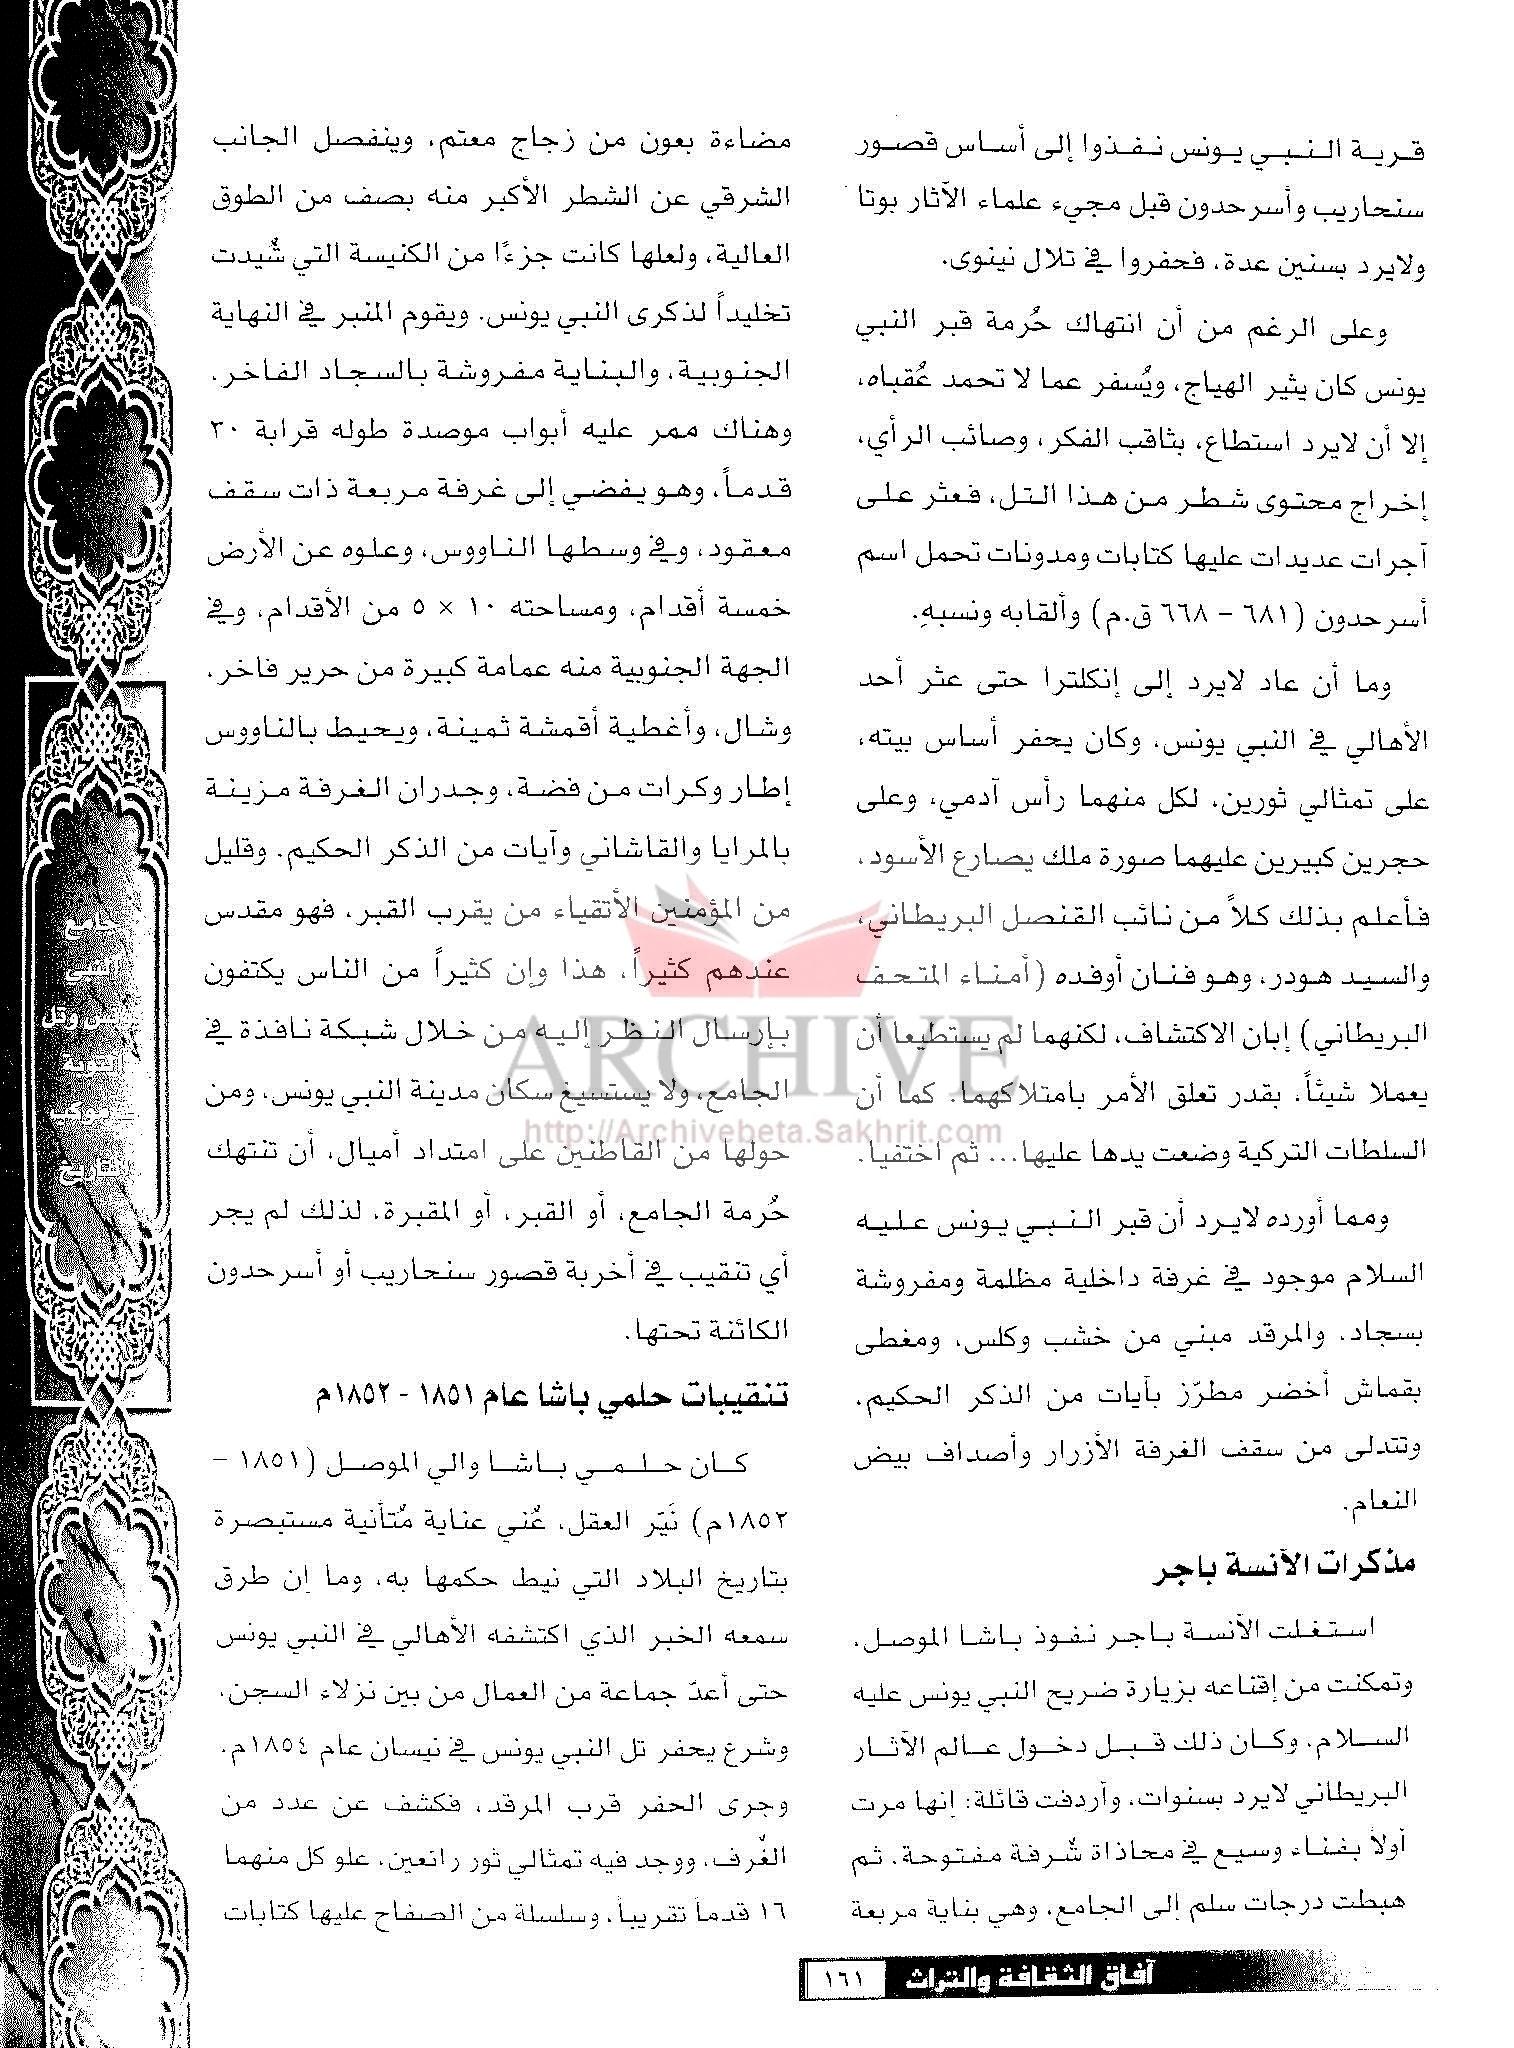 قرية النبي يونس نفذوا إلى أساس قصور
سنحاريب وأسرحدون قبل مجيء علماء الآثار بوتا
ولايرد بسنين عدة، فحفروا في تلال نينوى.
وعلى الرغم من أن انتهاك حُرمة قبر النبي
يونس كان يثير الهياج، ويُسفر عما لا تحمد عُقباه،
إلا أن لايرد استطاع، بثاقب الفكر، وصائب الرأي،
إخراج محتوى شطر من هذا التل، فعثر على
آجرات عديدات عليها كتابات ومدونات تحمل اسم
أسرحدون (٦٨١ - ٦٦٨ ق.م) وألقابه ونسبهِ.
وما أن عاد لايرد إلى إنكلترا حتى عثر أحد
الأهالي في النبي يونس، وكان يحفر أساس بيته،
على تمثالي ثورين، لكل منهما رأس آدمي، وعلى
حجرين كبيرين عليهما صورة ملك يصارع الأسود،
فأعلم بذلك كلاً من نائب القنصل البريطاني،
والسيد هودر، وهو فنان أوفده (أمناء المتحف
البريطاني) إبان الاكتشاف، لكنهما لم يستطيعا أن
يعملا شيئاً، بقدر تعلق الأمر بامتلاكهما. كما أن
السلطات التركية وضعت يدها عليها... ثم اختفيا.
ومما أورده لايرد أن قبر النبي يونس عليه
السلام موجود في غرفة داخلية مظلمة ومفروشة
بسجاد، والمرقد مبني من خشب وكلس، ومغطى
بقماش أخضر مطرّز بآيات من الذكر الحكيم،
وتتدلى من سقف الغرفة الأزرار وأصداف بيض
النعام.
مذكرات الآنسة باجر
استغلت الآنسة باجر نفوذ باشا الموصل،
وتمكنت من إقناعه بزيارة ضريح النبي يونس عليه
السلام، وكان ذلك قبل دخول عالم الآثار
البريطاني لايرد بسنوات، وأردفت قائلة: إنها مرت
أولاً بفناء وسيع في محاذاة شُرفة مفتوحة، ثم
هبطت درجات سلم إلى الجامع، وهي بناية مربعة
مضاءة بعون من زجاج معتم، وينفصل الجانب
الشرقي عن الشطر الأكبر منه بصف من الطوق
العالية، ولعلها كانت جزءًا من الكنيسة التي شُيدت
تخليداً لذكرى النبي يونس. ويقوم المنبر في النهاية
الجنوبية، والبناية مفروشة بالسجاد الفاخر.
وهناك ممر عليه أبواب موصدة طوله قرابة ٣٠
قدماً، وهو يفضي إلى غرفة مربعة ذات سقف
معقود، وفي وسطها الناووس، وعلوه عن الأرض
خمسة أقدام، ومساحته ١٠ × ٥ من الأقدام، وفي
الجهة الجنوبية منه عمامة كبيرة من حرير فاخر،
وشال، وأغطية أقمشة ثمينة، ويحيط بالناووس
إطار وكرات من فضة، وجدران الغرفة مزينة
بالمرايا والقاشاني وآيات من الذكر الحكيم. وقليل
من المؤمنين الأتقياء من يقرب القبر، فهو مقدس
عندهم كثيراً، هذا وإن كثيراً من الناس يكتفون
بإرسال النظر إليه من خلال شبكة نافذة في
الجامع، ولا يستسيغ سكان مدينة النبي يونس، ومن
حولها من القاطنين على امتداد أميال، أن تنتهك
حُرمة الجامع، أو القبر، أو المقبرة، لذلك لم يجر
أي تنقيب في أخربة قصور سنحاريب أو أسرحدون
الكائنة تحتها.
تنقيبات حلمي باشا عام ١٨٥١ - ١٨٥٢م
كان حلمي باشا والي الموصل (١٨٥١ -
١٨٥٢م) نَيّر العقل، عُني عناية مُتأنية مستبصرة
بتاريخ البلاد التي نيط حكمها به، وما إن طرق
سمعه الخبر الذي اكتشفه الأهالي في النبي يونس
حتى أعدّ جماعة من العمال من بين نزلاء السجن،
وشرع يحفر تل النبي يونس في نيسان عام ١٨٥٤م.
وجرى الحفر قرب المرقد، فكشف عن عدد من
الغُرف، ووجد فيه تمثالي ثور رائعين، علو كل منهما
١٦ قدماً تقريباً، وسلسلة من الصفاح عليها كتابات
ARCHIVE
http://Archivebeta.Sakhrit.com
آفاق الثقافة والتراث ١٦١